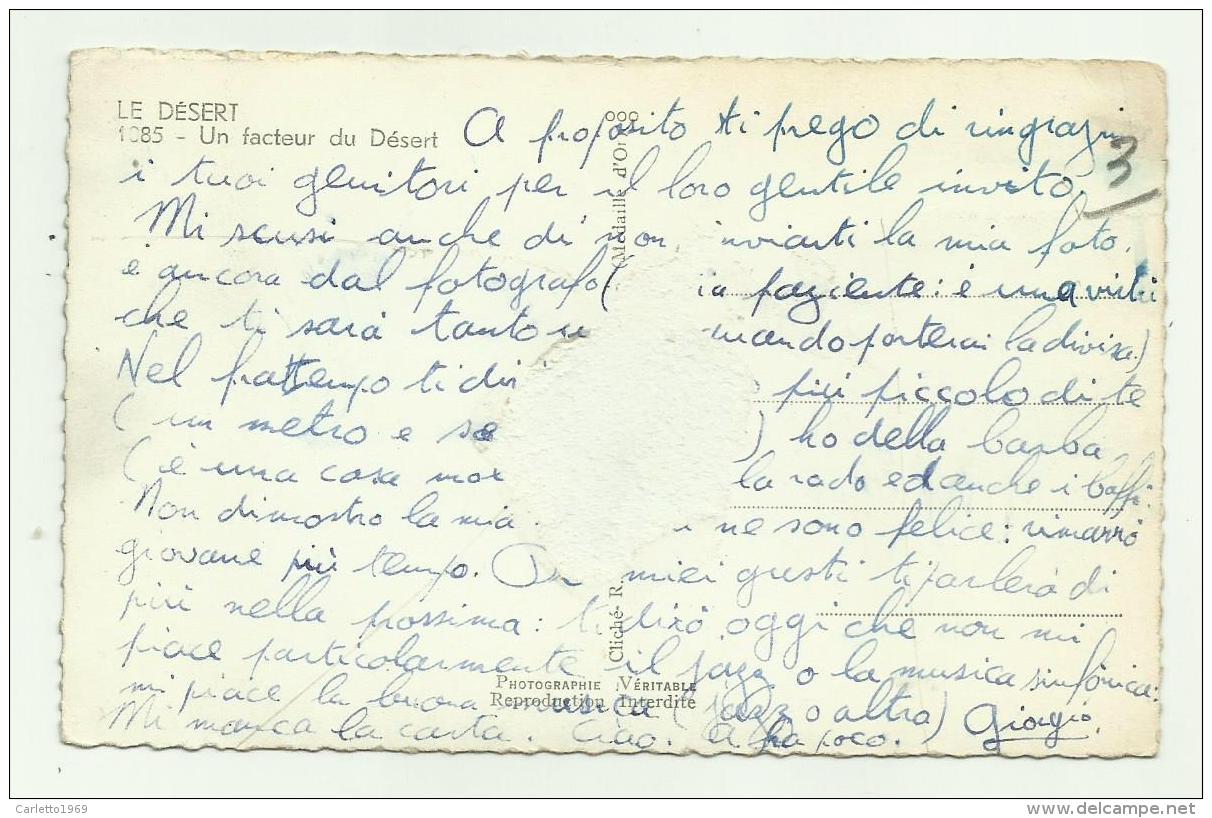 LE DÉSERT
1085 - Un facteur du Désert
A proposito ti prego di
i tuoi genitori per il loro gentile invito.
Mi scusi anche di non inviarti la mia foto.
è ancora dal fotografo ( paziente: è una virtù
che ti sarà tanto porterai la divisa.)
Nel frattempo ti più piccolo di te
( un metro e ) ho della barba
( è una cosa rado ed anche i baffi.
Non dimostro la mia ne sono felice: rimarrò
giovane più tempo. miei gusti ti parlerò di
più nella prossima: ti dirò oggi che non mi
piace particolarmente il jazz o la musica sinfonica:
mi piace la buona musica ( jazz o altra) Giorgio.
Mi manca la carta. Ciao. A fra poco.
3
(Médaille d'Or
(Cliché R.
PHOTOGRAPHIE VÉRITABLE
Reproduction Interdite
Carletto1969
delcampe.net